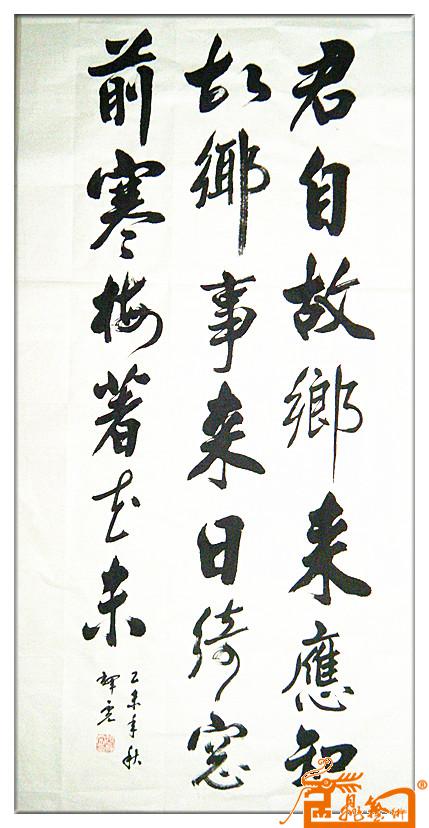 君自故鄉來應知
故鄉事來日綺窓
前寒梅著花未
乙未年秋